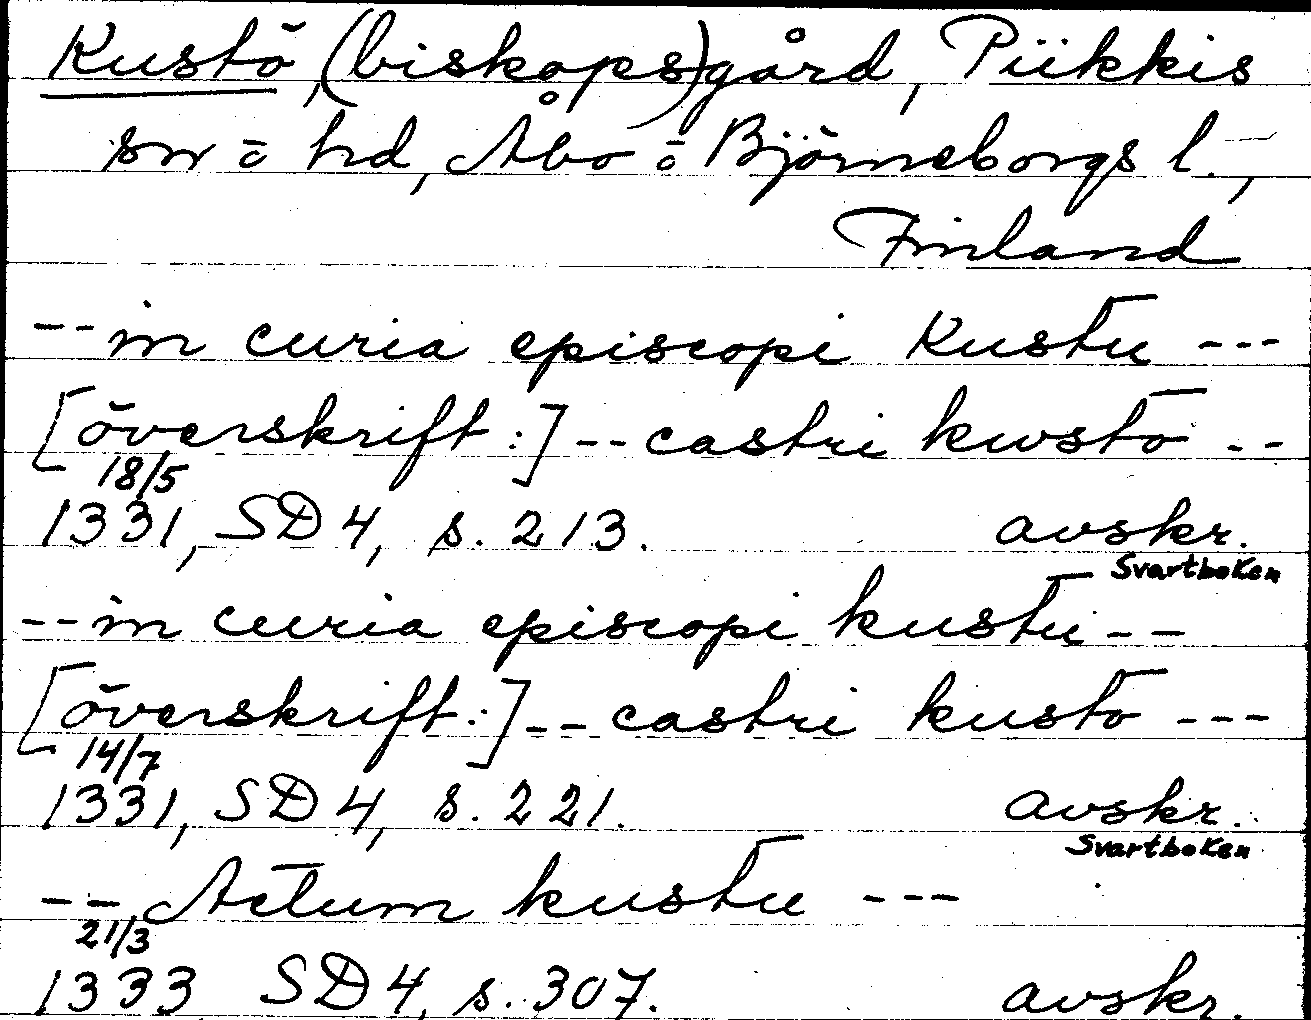 Kustö, (biskops)gård, Piikkis
sn o hd, Åbo o Björneborgs l.,
Finland
-- in curia episcopi Kustu ---
[överskrift:] -- castri kwsto --
18/5
1331, SD 4, s. 213. avskr.
Svartboken
-- in curia episcopi kustu --
[överskrift:] -- castri kusto ---
14/7
1331, SD 4, s. 221. avskr.
Svartboken
-- Actum kustu ---
21/3
1333 SD 4, s. 307. avskr.